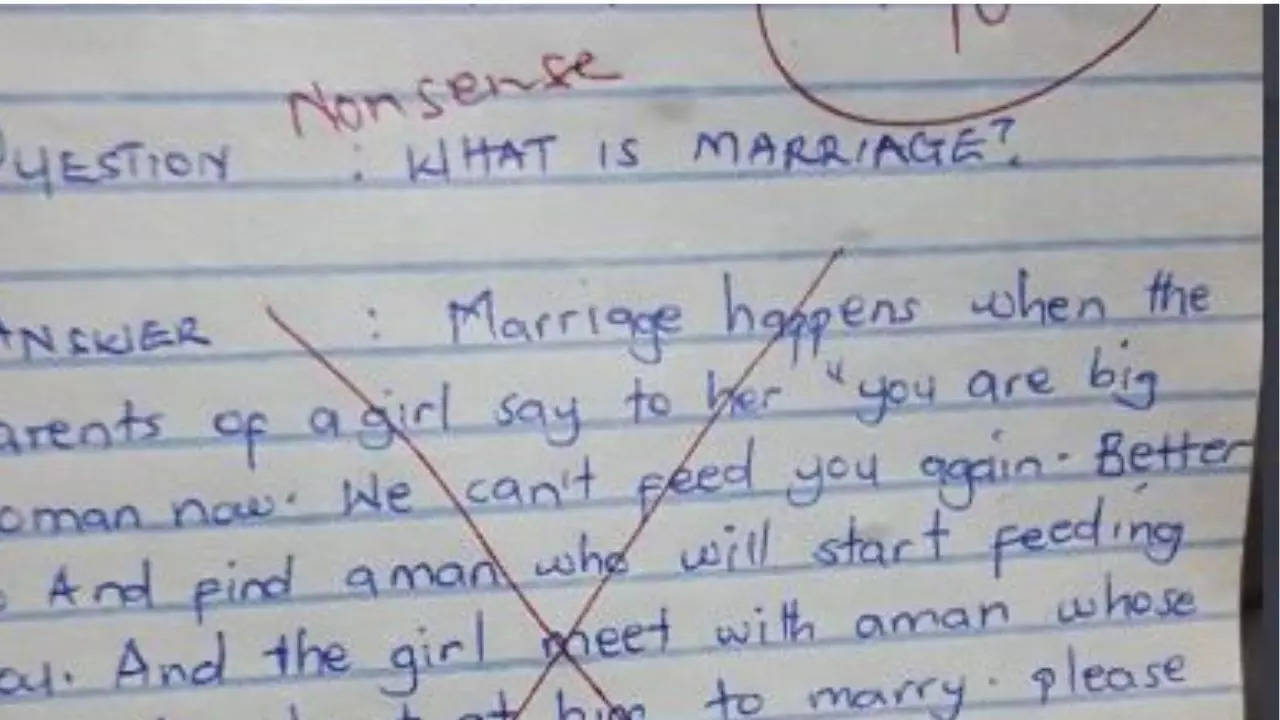 Nonsense
QUESTION : WHAT IS MARRIAGE?
ANSWER : Marriage happens when the
arents of a girl say to her "you are big
oman now. We can't feed you again. Better
And find a man who will start feeding
ou. And the girl meet with a man whose
at him to marry. please